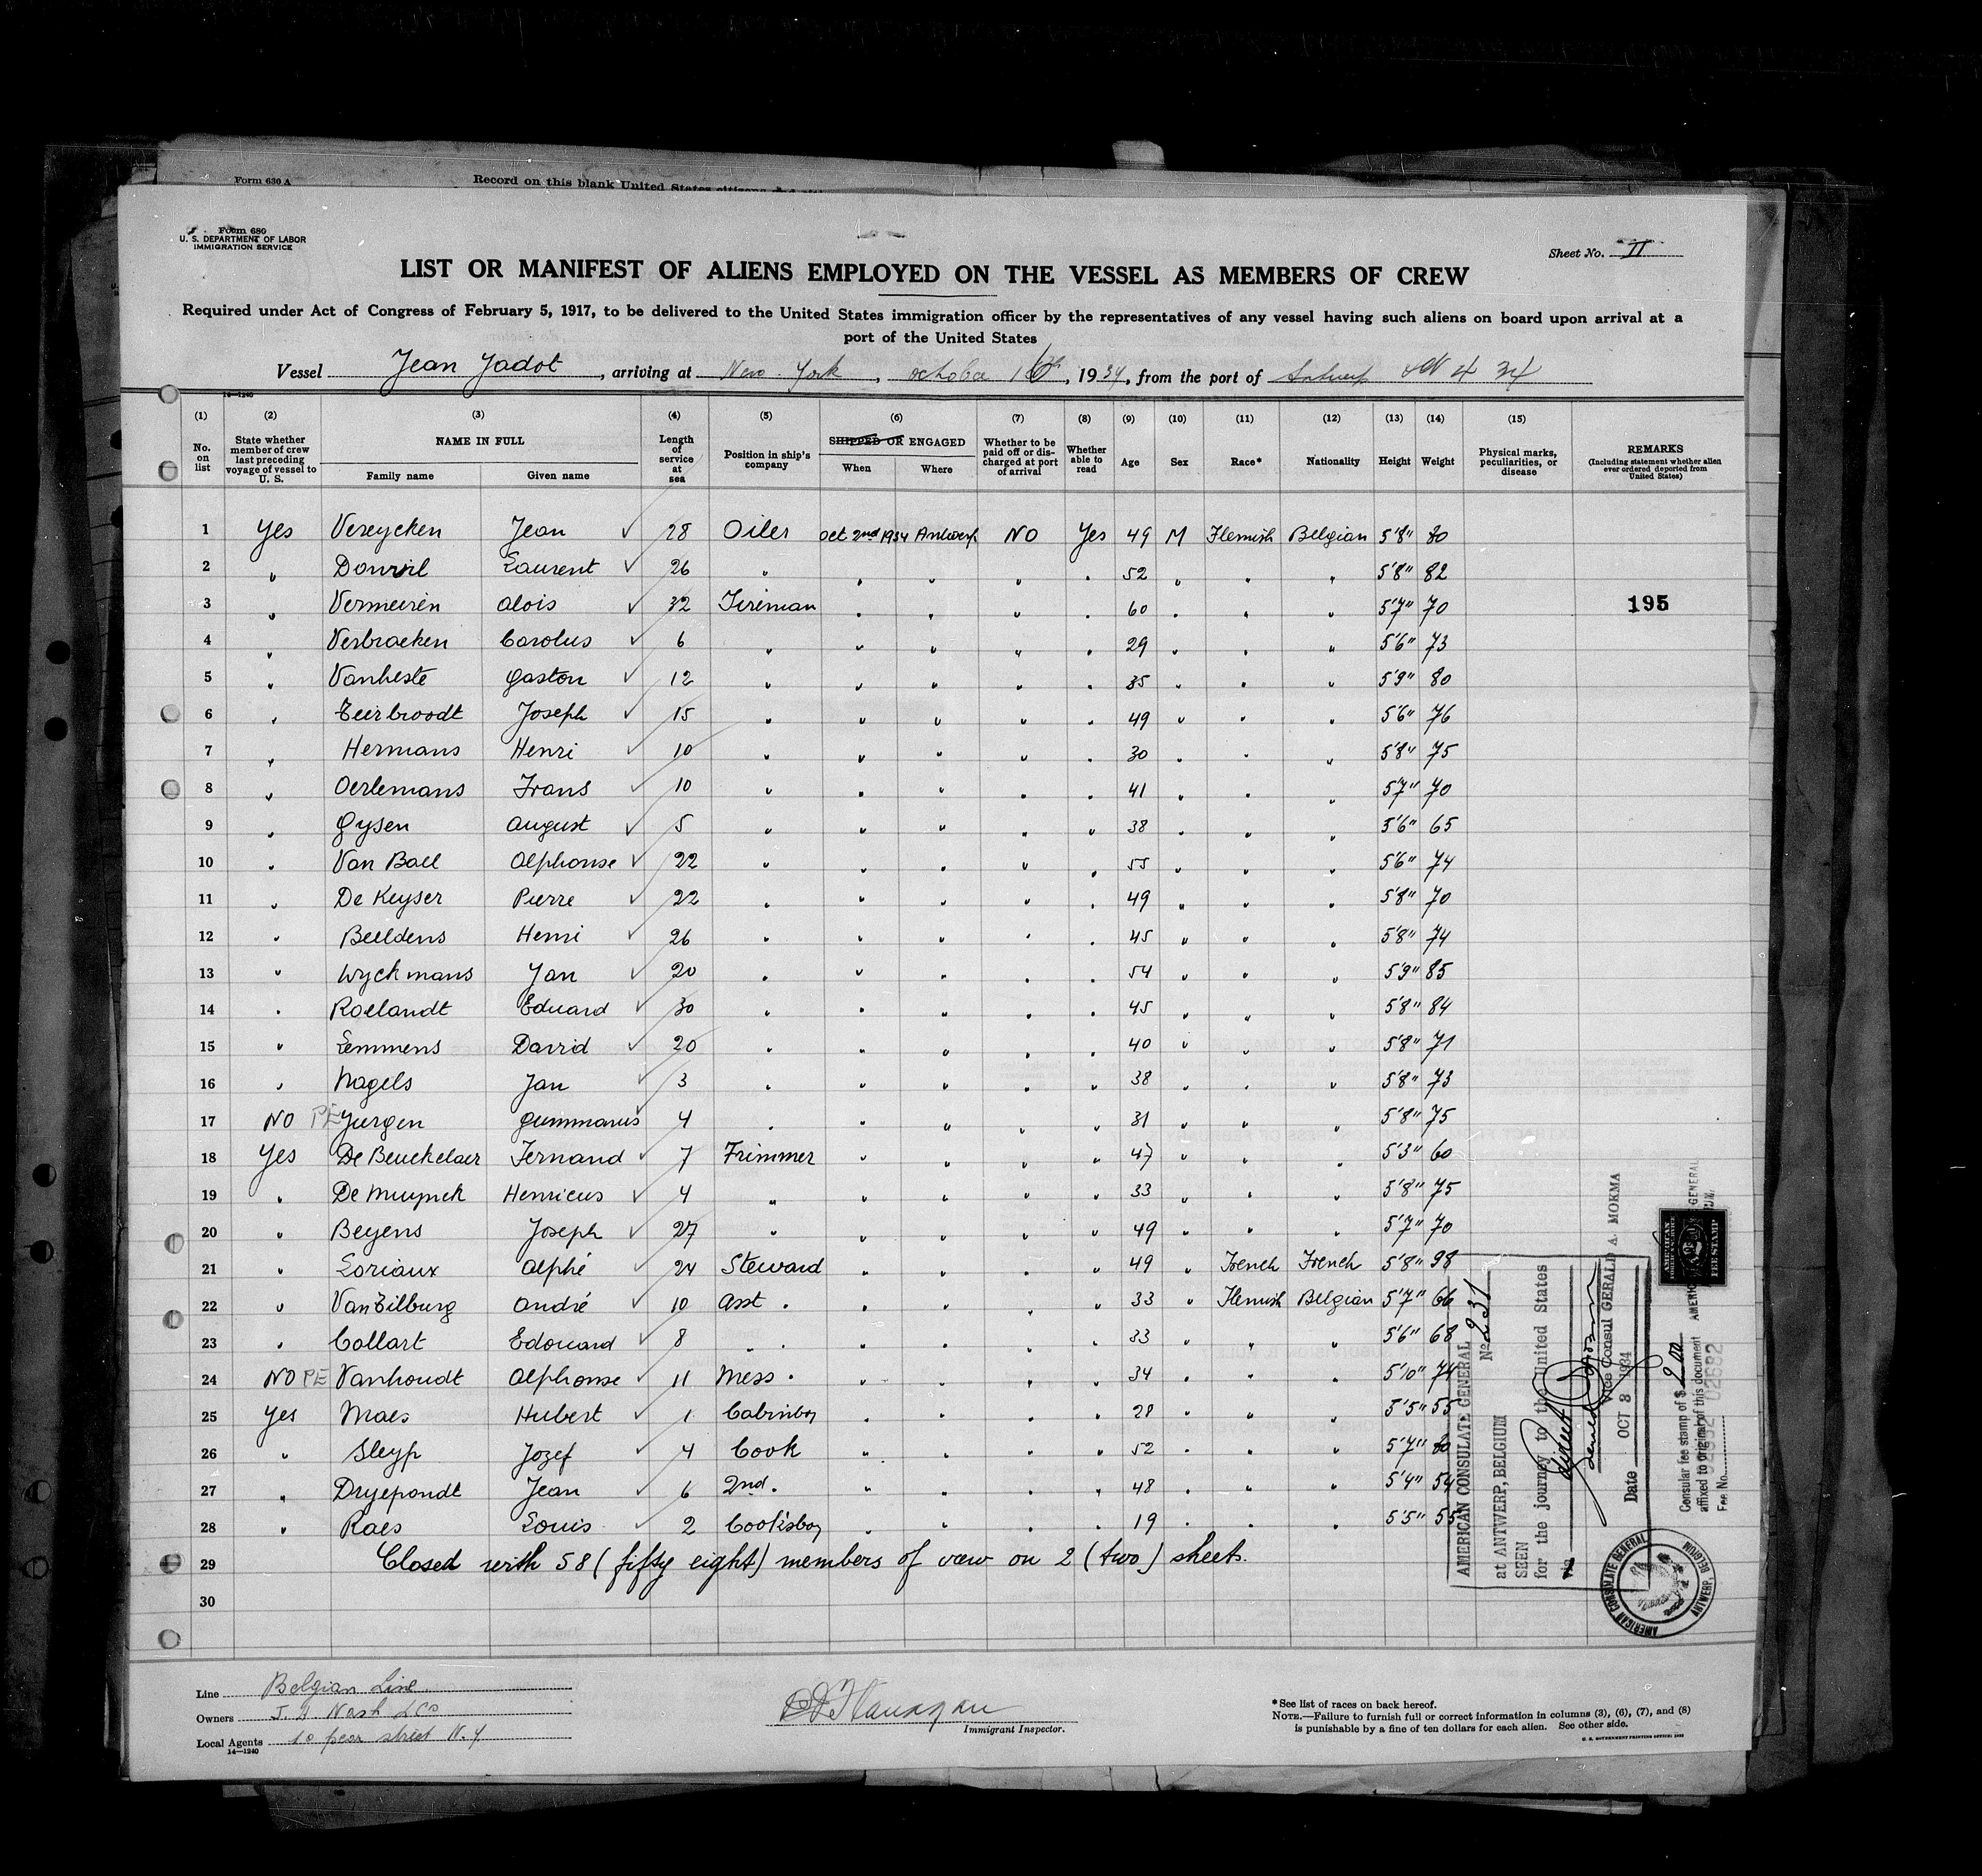 Form 630 A Record on this blank United States citizens
Form 680
U. S. DEPARTMENT OF LABOR
IMMIGRATION SERVICE
Sheet No. II
LIST OR MANIFEST OF ALIENS EMPLOYED ON THE VESSEL AS MEMBERS OF CREW
Required under Act of Congress of February 5, 1917, to be delivered to the United States immigration officer by the representatives of any vessel having such aliens on board upon arrival at a
port of the United States
Vessel Jean Jadot, arriving at New York, october 16th, 1934, from the port of Antwerp Oct 4 34
14—1240
(1) (2) (3) (4) (5) (6) (7) (8) (9) (10) (11) (12) (13) (14) (15)
No. on list State whether member of crew last preceding voyage of vessel to U. S. NAME IN FULL Family name Given name Length of service at sea Position in ship's company SHIPPED OR ENGAGED When Where Whether to be paid off or discharged at port of arrival Whether able to read Age Sex Race* Nationality Height Weight Physical marks, peculiarities, or disease REMARKS (Including statement whether alien ever ordered deported from United States)
1 Yes Vereycken Jean ✓ 28 Oiler Oct 2nd 1934 Antwerp NO Yes 49 M Flemish Belgian 5'8" 80
2 " Laurent ✓ 26 " " " " " 52 " " " 5'8" 82
3 " Vermeiren Alois ✓ 32 Fireman " " " " 60 " " " 5'7" 70 195
4 " Verbraeken Carolus ✓ 6 " " " " " 29 " " " 5'6" 73
5 " Vanheste Gaston ✓ 12 " " " " " 35 " " " 5'9" 80
6 " Teirbroodt Joseph ✓ 15 " " " " " 49 " " " 5'6" 76
7 " Hermans Henri ✓ 10 " " " " " 30 " " " 5'8" 75
8 " Oerlemans Frans ✓ 10 " " " " " 41 " " " 5'7" 70
9 " Gysen August ✓ 5 " " " " " 38 " " " 5'6" 65
10 " Van Bael Alphonse ✓ 22 " " " " " 55 " " " 5'6" 74
11 " De Keyser Pierre ✓ 22 " " " " " 49 " " " 5'8" 70
12 " Beeldens Henri ✓ 26 " " " " " 45 " " " 5'8" 74
13 " Wyckmans Jan ✓ 20 " " " " " 54 " " " 5'9" 85
14 " Roelandt Eduard ✓ 30 " " " " " 45 " " " 5'8" 84
15 " Lemmens David ✓ 20 " " " " " 40 " " " 5'8" 71
16 " Nagels Jan ✓ 3 " " " " " 38 " " " 5'8" 73
17 NO PE Jurgen Gummarus ✓ 4 " " " " " 31 " " " 5'8" 75
18 Yes De Beuckelaer Fernand ✓ 7 Trimmer " " " " 47 " " " 5'3" 60
19 " De Muynck Henricus ✓ 4 " " " " " 33 " " " 5'8" 75
20 " Beyens Joseph ✓ 27 " " " " " 49 " " " 5'7" 70
21 " Loriaux Alphé ✓ 24 Steward " " " " 49 " French French 5'8" 98
22 " Van Tilburg André ✓ 10 Asst " " " " " 33 " Flemish Belgian 5'7" 66
23 " Collart Edouard ✓ 8 " " " " " " 33 " " " 5'6" 68
24 NO PE Vanhoudt Alphonse ✓ 11 Mess " " " " " 34 " " " 5'10" 74
25 Yes Maes Hubert ✓ 1 Cabinboy " " " " 28 " " " 5'5" 55
26 " Sleyp Jozef ✓ 4 Cook " " " " 52 " " " 5'7" 80
27 " Dryepondt Jean ✓ 6 2nd " " " " " 48 " " " 5'4" 54
28 " Raes Louis ✓ 2 Cooksboy " " " " 19 " " " 5'5" 55
29 Closed with 58 (fifty eight) members of crew on 2 (two) sheets.
30
AMERICAN CONSULATE GENERAL
No 231
at ANTWERP, BELGIUM
SEEN
for the journey to the United States
via direct
Vice Consul GERALD A. MOKMA
Date OCT 3 1934
Consular fee stamp of $ 2.00
affixed to original of this document
Fee No.
AMERICAN FOREIGN SERVICE FEE STAMP
AMERICAN CONSULATE GENERAL ANTWERP, BELGIUM
Line Belgian Line
Owners
Local Agents 10 pear street N.Y
14—1240
Flanagan
Immigrant Inspector.
* See list of races on back hereof.
NOTE.—Failure to furnish full or correct information in columns (3), (6), (7), and (8)
is punishable by a fine of ten dollars for each alien. See other side.
U. S. GOVERNMENT PRINTING OFFICE: 1933